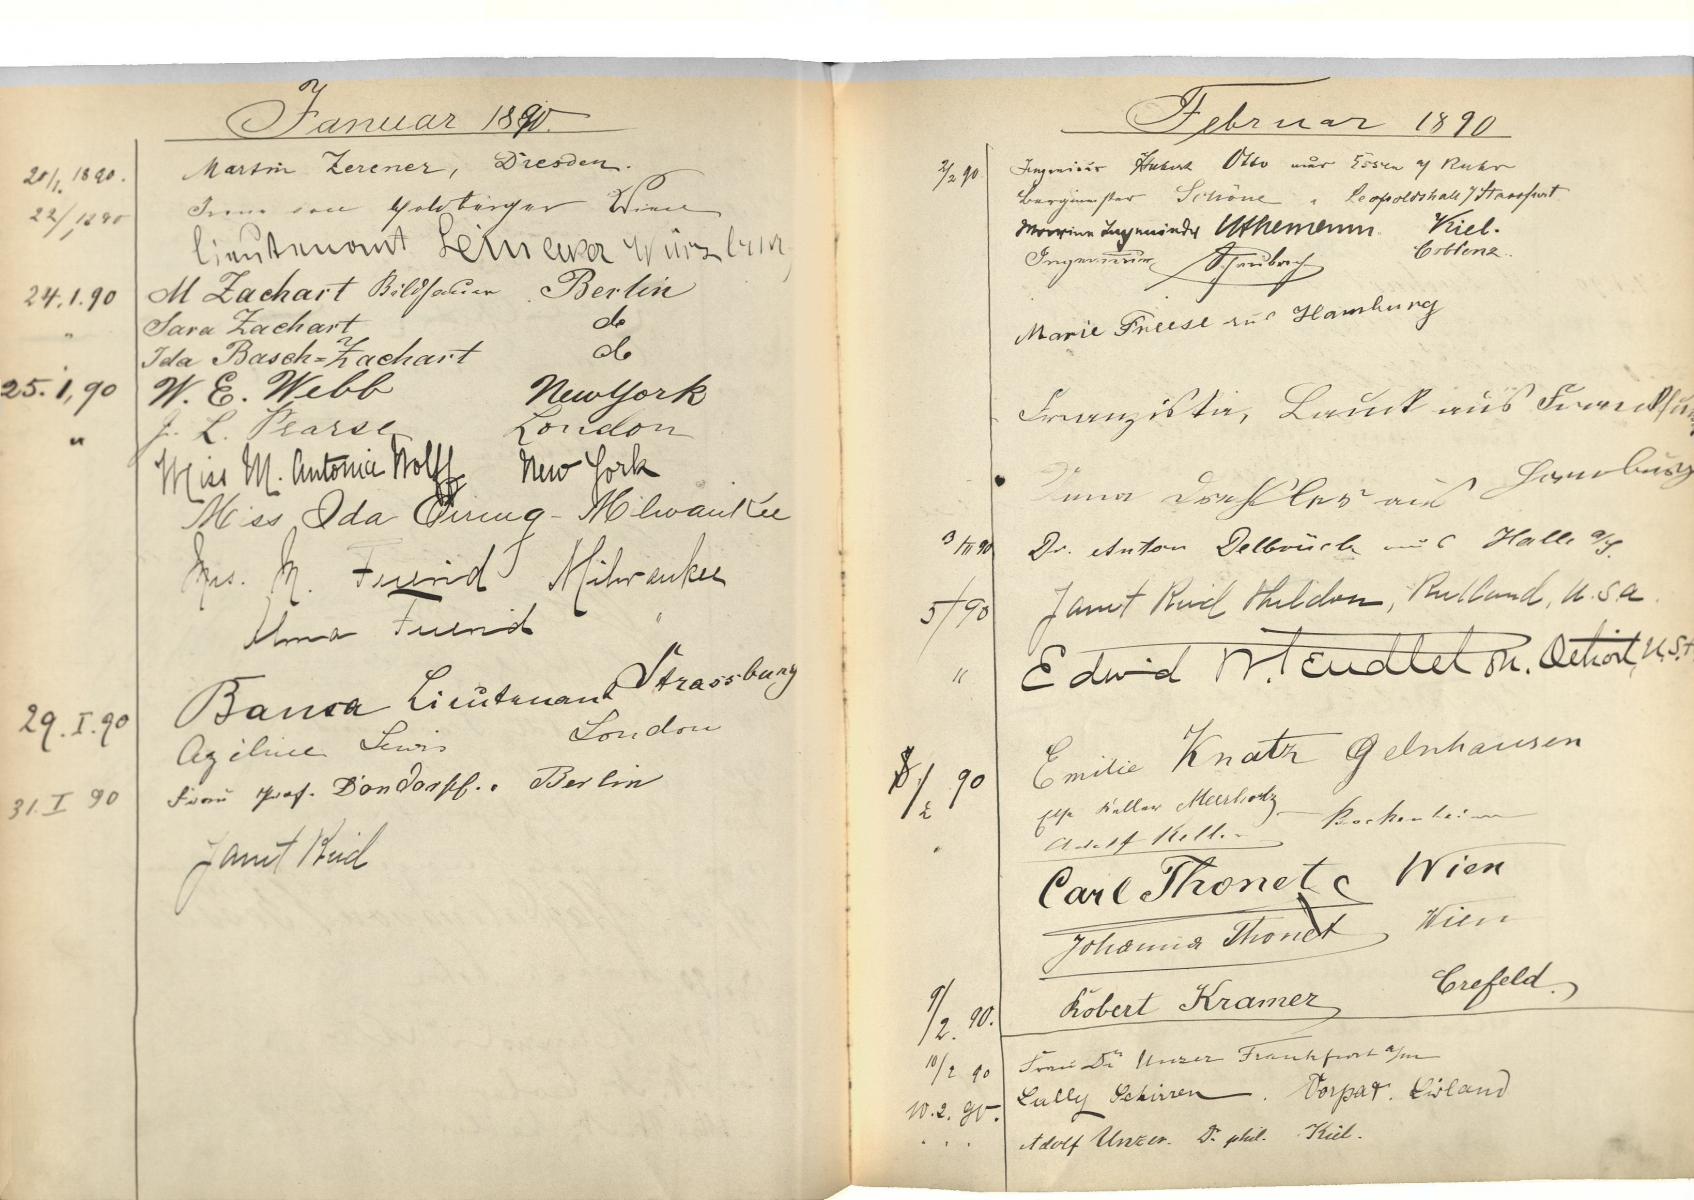 Januar 1890.
20/1. 1890. Martin Zerener, Dresden.
22/1 1890 von Goldberger Wien
Lieutenant Würzburg
24.1.90 M Zachart Bildhauer Berlin
" Sara Zachart do
Ida Basch=Zachart do
25.1,90 W. E. Webb New York
" J. L. Pearse London
Miss M. Antonia Wolff New York
Miss Ida - Milwaukee
Mrs. M. Freund Milwaukee
Alma Freund "
Lieutenant Strassburg
29.I.90 Lewis London
31.I 90 Frau Prof. Dondorff.. Berlin
Janet Reid
Februar 1890
2/2 90 Ingenieur Hubert Otto aus Essen a/ Ruhr
Bergmeister Schöne " Leopoldshall / Stassfurt
Marine Ingenieur Uthemann. Kiel.
Ingenieur Coblenz.
Marie Freese aus Hamburg
Franziska, Lauck aus Frankfurt
aus Hamburg
3/II 90 Dr. Anton Delbrück aus Halle a/S.
5/ 90 Janet Reid Sheldon, Rutland, U.S.A.
" Edwid Detroit, U.S.A
8/2 90 Emilie Knatz Gelnhausen
Else Keller Meerholz
" Adolf Keller Bockenheim
Carl Thonet Wien
Johanna Thonet Wien
9/2. 90. Robert Kramer Crefeld.
10/2 90 Frau Dr Unzer Frankfurt a/m
10.2.90. Lally Schirren. Dorpat. Livland
" " " Adolf Unzer. Dr. phil. Kiel.